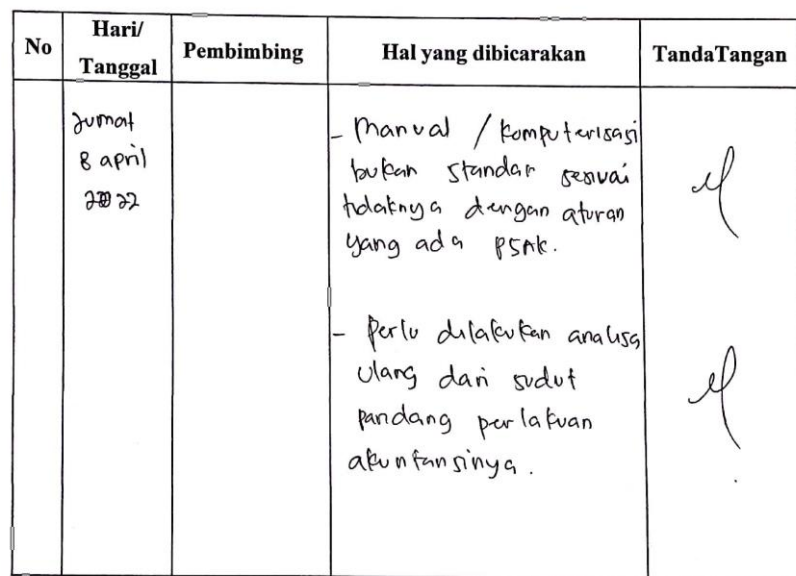 No
Hari/
Tanggal
Pembimbing
Hal yang dibicarakan
TandaTangan
Jumat
8 april
2022
- Manual / komputerisasi
bukan standar sesuai
tidaknya dengan aturan
yang ada PSAK.
- Perlu dilakukan analisa
ulang dari sudut
pandang perlakuan
akuntansinya.